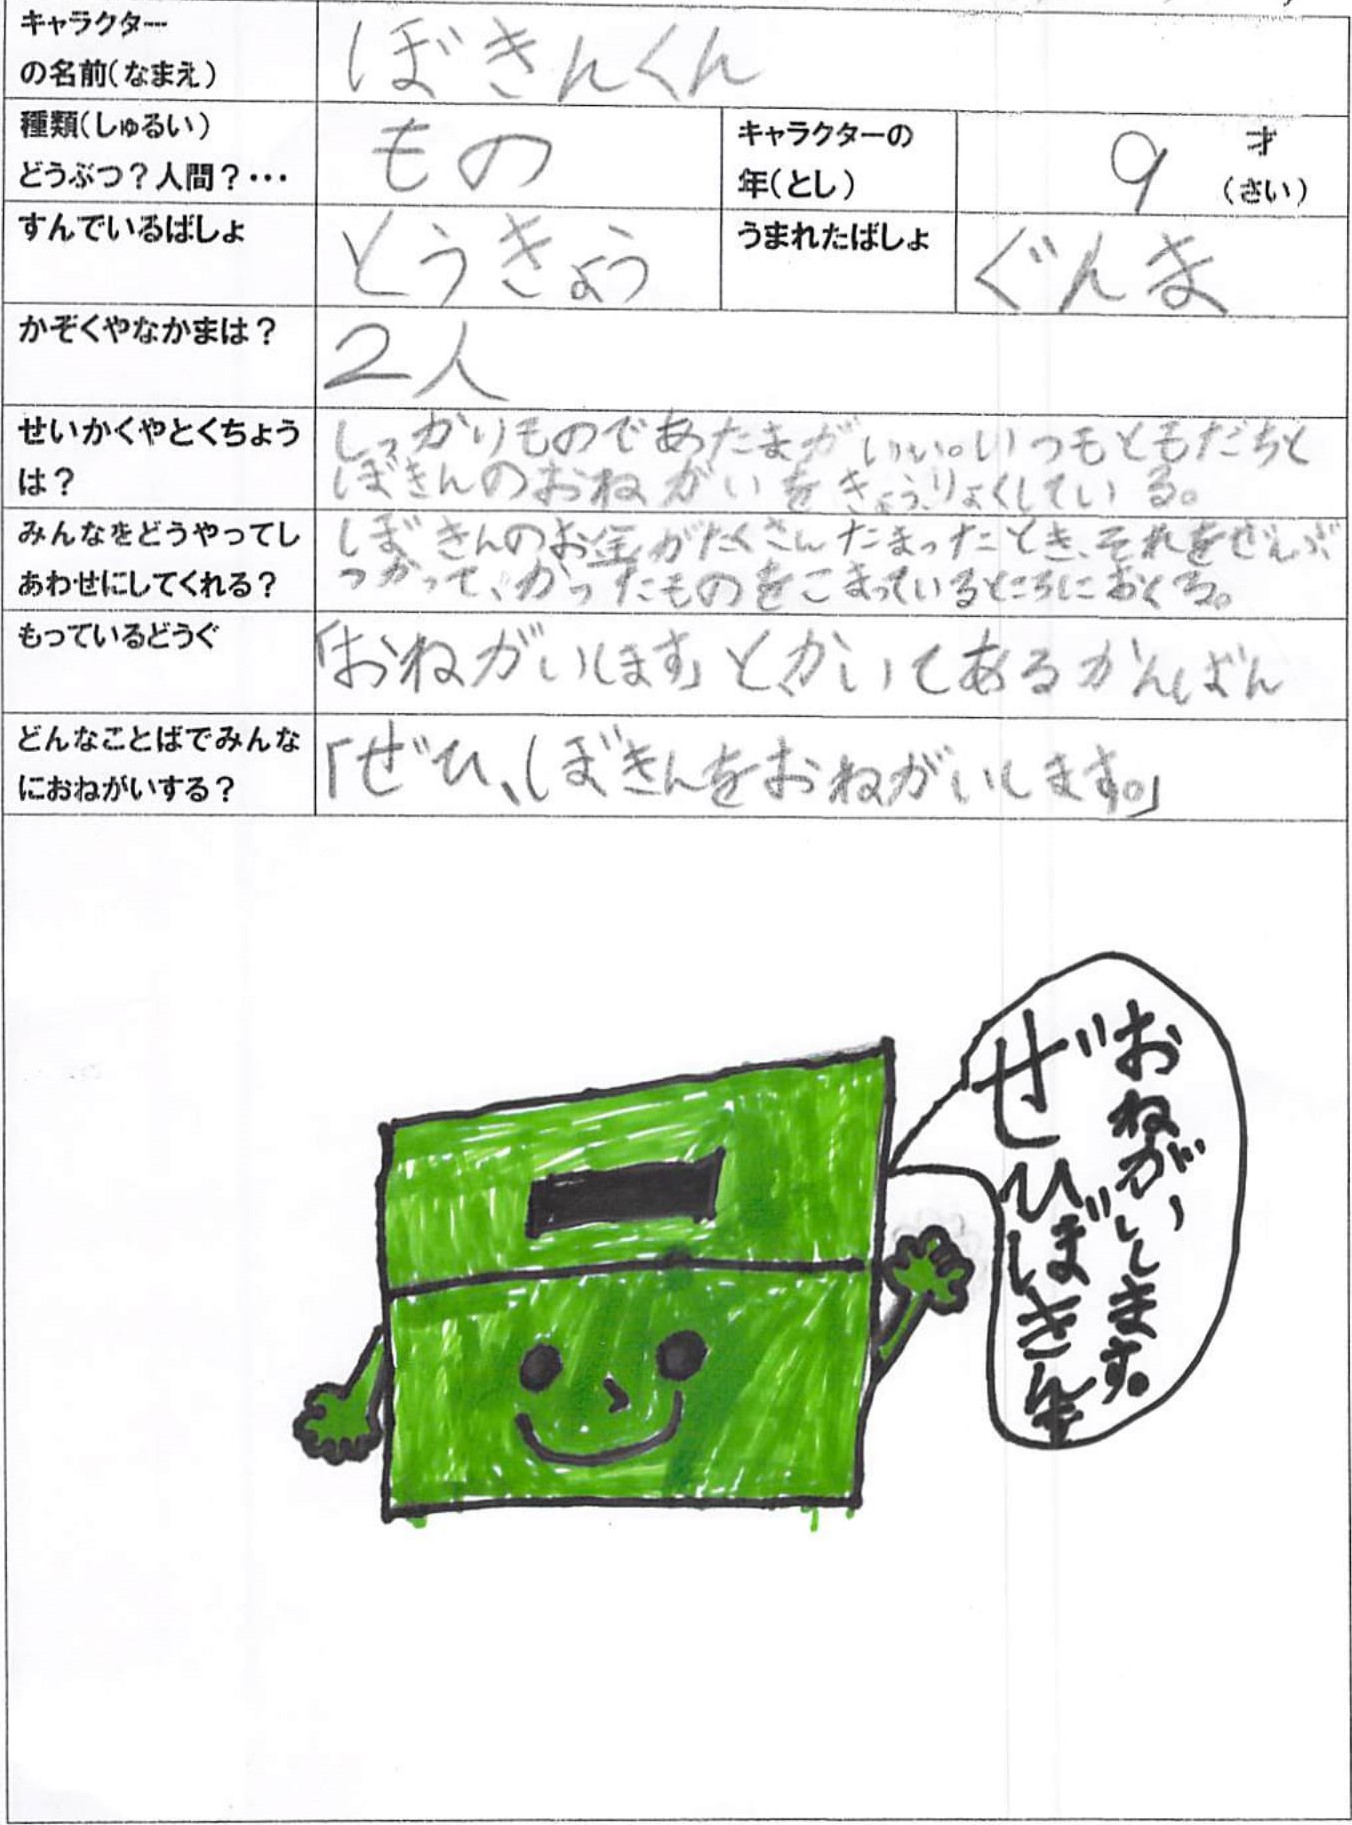 キャラクター
の名前(なまえ)
ぼきんくん
種類(しゅるい)
どうぶつ?人間?・・・
もの
キャラクターの
年(とし)
9
才
(さい)
すんでいるばしょ
とうきょう
うまれたばしょ
ぐんま
かぞくやなかまは?
2人
せいかくやとくちょう
は?
しっかりものであたまがいい。いつもともだちと
ぼきんのおねがいをきょうりょくしている。
みんなをどうやってし
あわせにしてくれる?
ぼきんのお金がたくさんたまったとき、それをぜんぶ
つかって、かったものをこまっているところにおくる。
もっているどうぐ
「おねがいします」とかいてあるかんばん
どんなことばでみんな
におねがいする?
「ぜひ、ぼきんをおねがいします。」
ぜひぼきん
おねがいします。